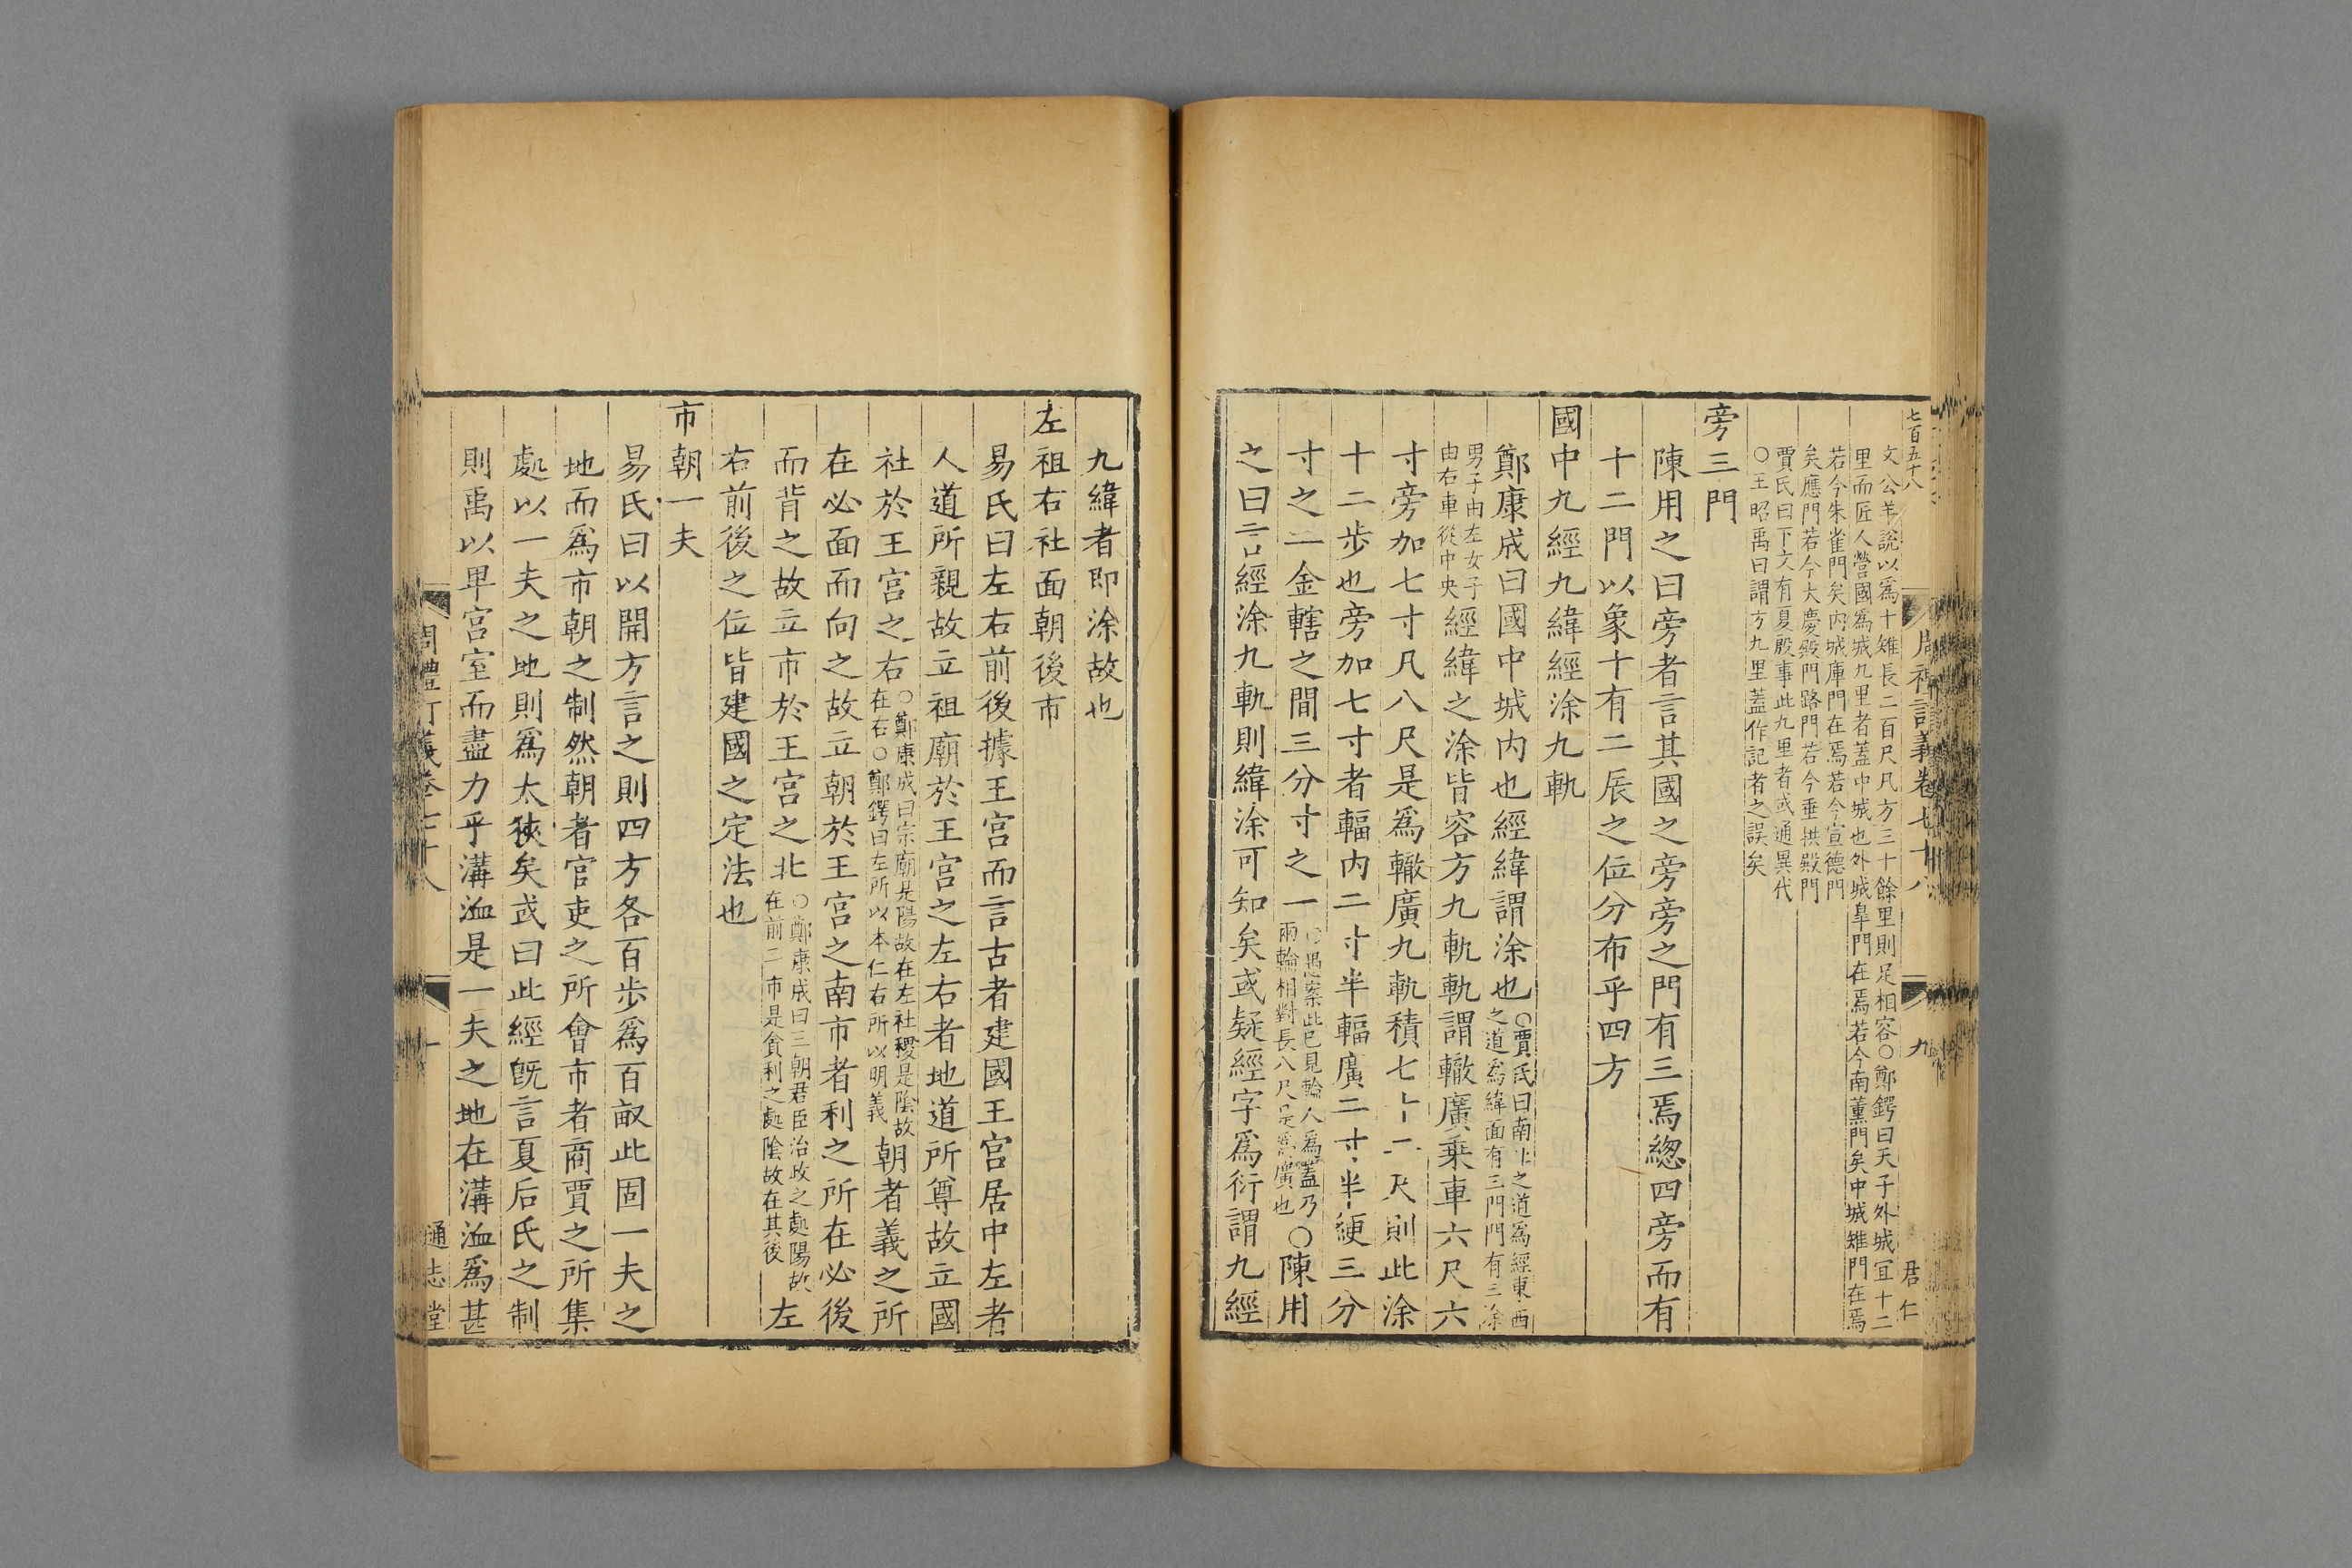 七百五十八
文公羊說以爲十雉長二百尺凡方三十餘里則足相容○鄭鍔曰天子外城宜十二
里而匠人營國爲城九里者蓋中城也外城皐門在焉若今南薰門矣中城雉門在焉
若今朱雀門矣內城庫門在焉若今宣德門
矣應門若今大慶殿門路門若今垂拱殿門
賈氏曰下文有夏殷事此九里者或通異代
○王昭禹曰謂方九里蓋作記者之誤矣
旁三門
陳用之曰旁者言其國之旁旁之門有三焉緫四旁而有
十二門以象十有二辰之位分布乎四方
國中九經九緯經涂九軌
鄭康成曰國中城內也經緯謂涂也○賈氏曰南北之道爲經東西
之道爲緯面有三門門有三涂
男子由左女子
由右車從中央經緯之涂皆容方九軌軌謂轍廣乗車六尺六
寸旁加七寸凡八尺是爲轍廣九軌積七十二尺則此涂
十二步也旁加七寸者輻內二寸半輻廣二寸半綆三分
寸之二金轄之間三分寸之一○愚案此已見輪人爲蓋乃
兩輪相對長八尺是爲廣也○陳用
之曰言經涂九軌則緯涂可知矣或疑經字爲衍謂九經
周禮訂義卷七十八
九
君仁
九緯者即涂故也
左祖右社面朝後市
易氏曰左右前後據王宮而言古者建國王宮居中左者
人道所親故立祖廟於王宮之左右者地道所尊故立國
社於王宮之右○鄭康成曰宗廟是陽故在左社稷是陰故
在右○鄭鍔曰左所以本仁右所以明義朝者義之所
在必面而向之故立朝於王宮之南市者利之所在必後
而背之故立市於王宮之北○鄭康成曰三朝君臣治政之處陽故
在前三市是貪利之處陰故在其後左
右前後之位皆建國之定法也
市朝一夫
易氏曰以開方言之則四方各百步爲百畝此固一夫之
地而爲市朝之制然朝者官吏之所會市者商賈之所集
處以一夫之地則爲太狹矣或曰此經旣言夏后氏之制
則禹以卑宮室而盡力乎溝洫是一夫之地在溝洫爲甚
周禮訂義卷七十八
通志堂